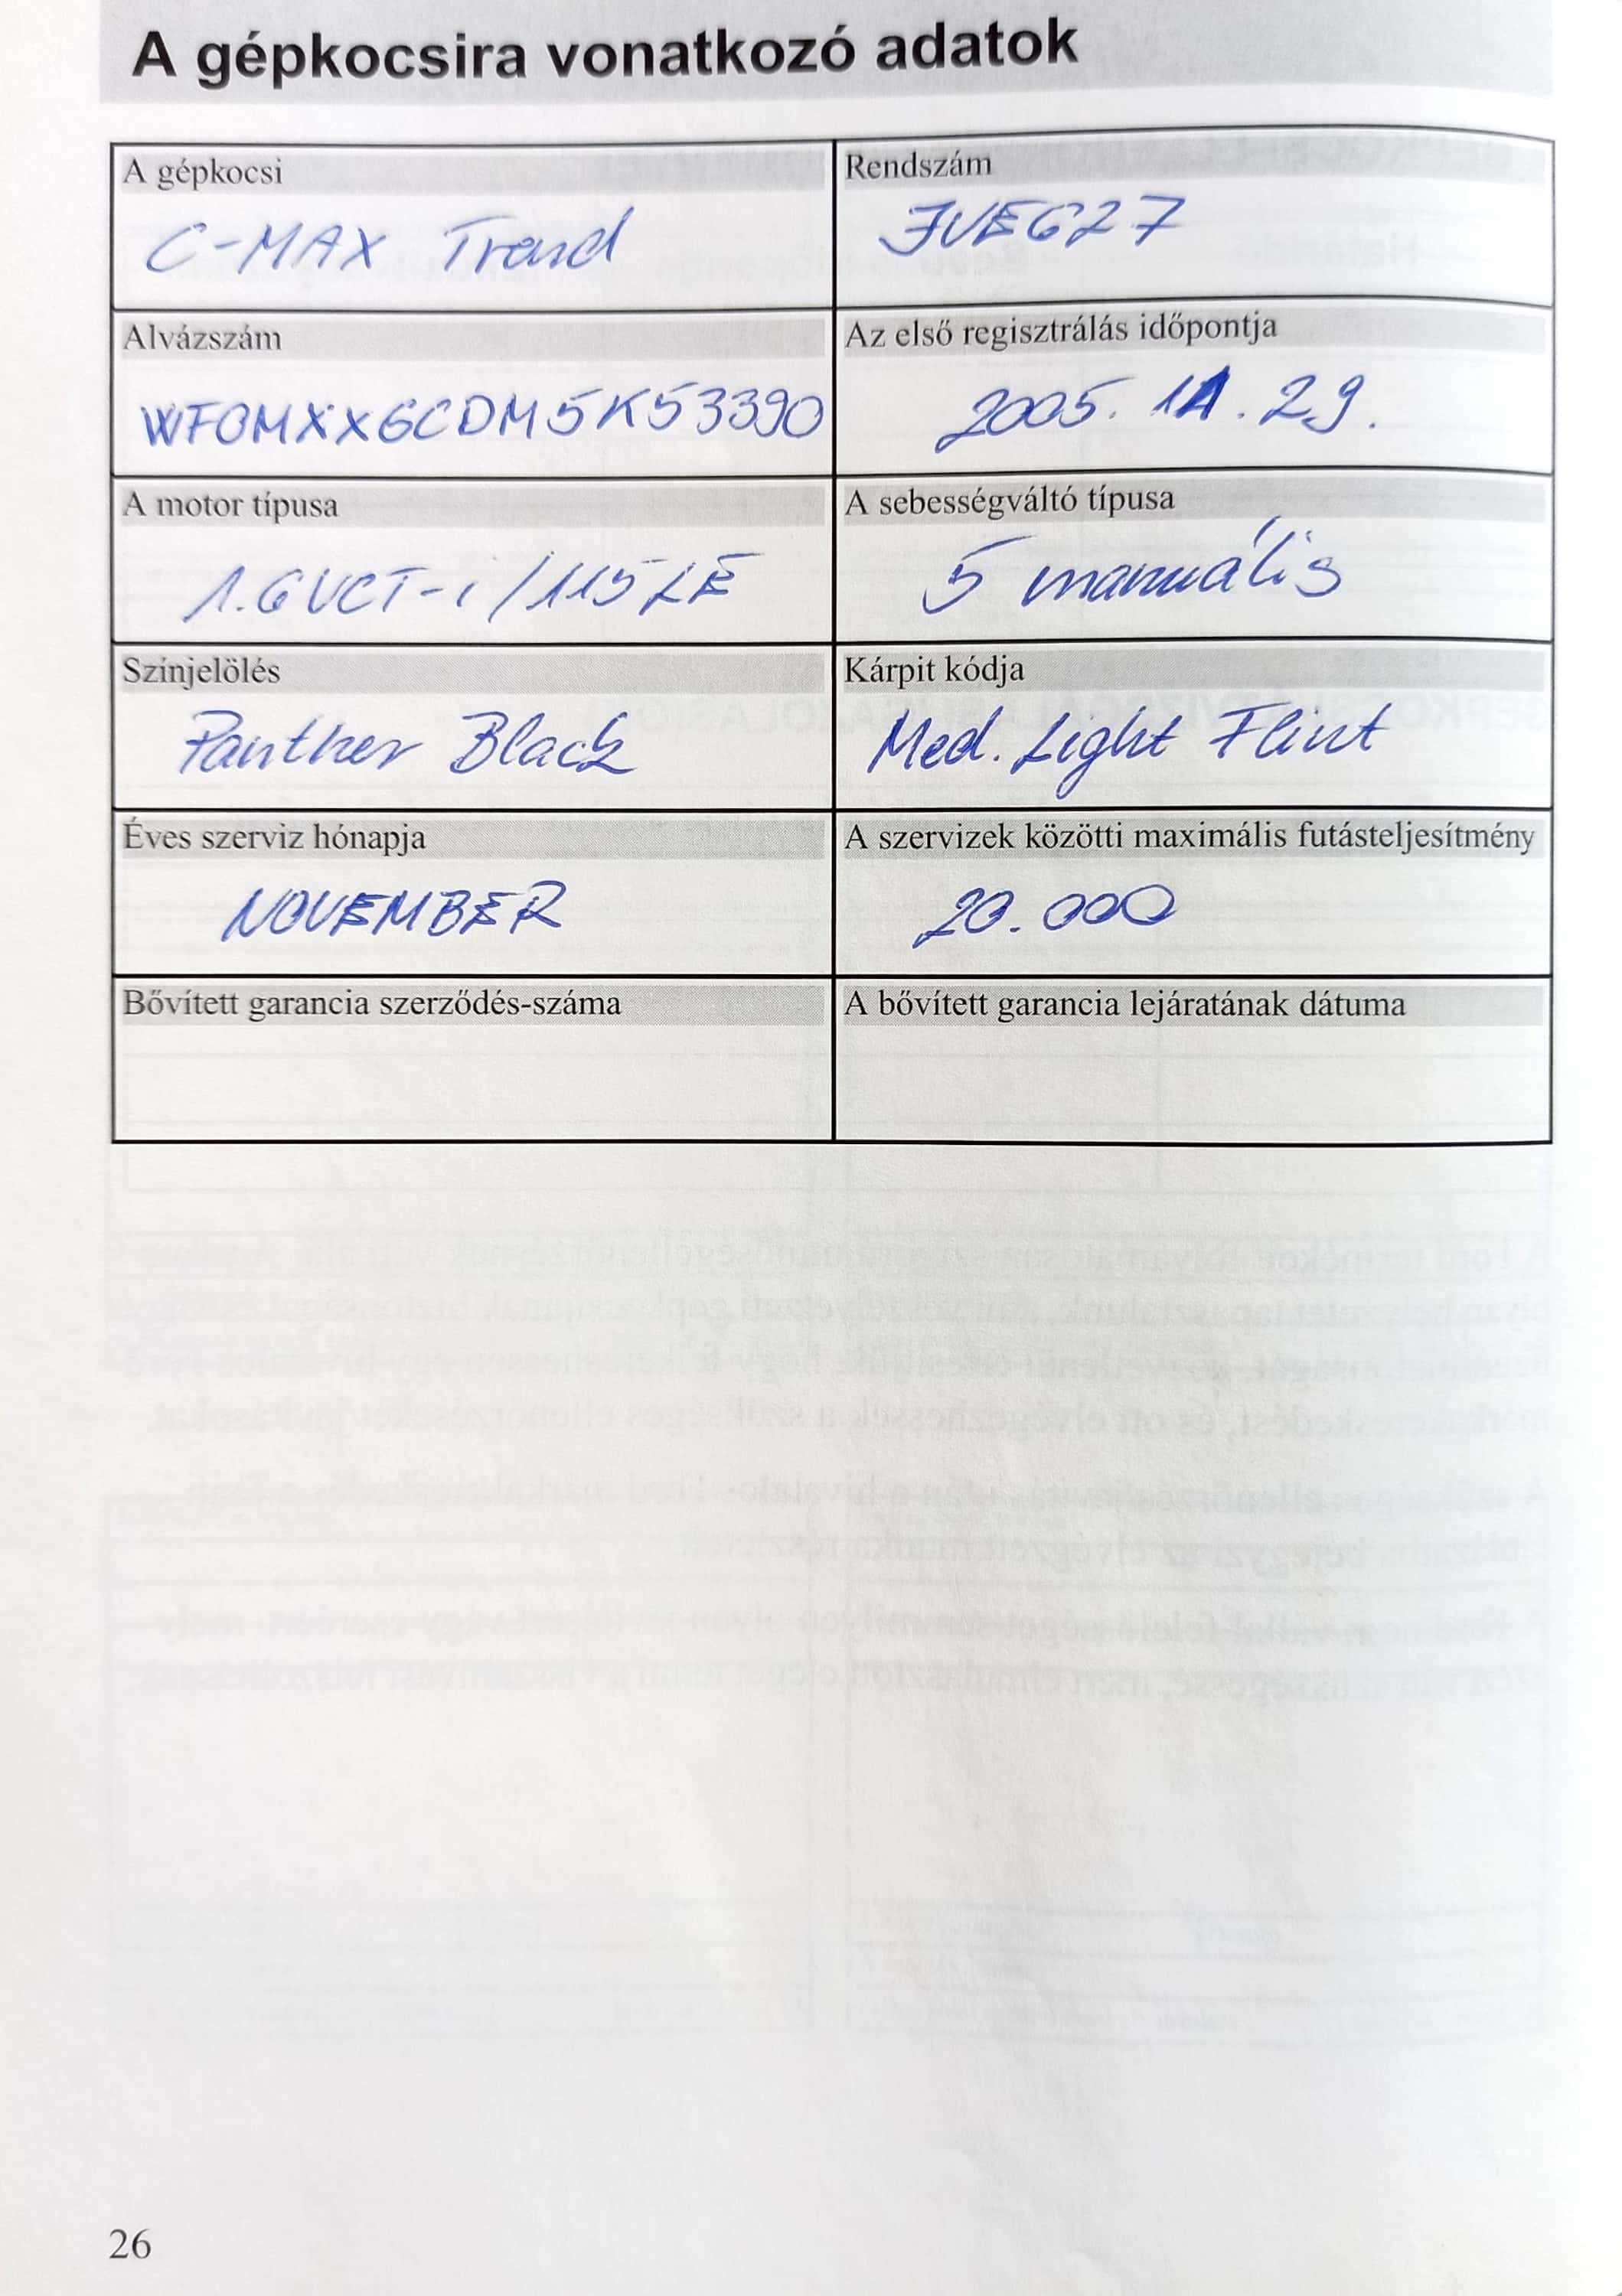 A gépkocsira vonatkozó adatok
A gépkocsi
C-MAX Trend
Rendszám
JVE627
Alvázszám
WF0MXXGCDM5K53390
Az első regisztrálás időpontja
2005. 11. 29.
A motor típusa
1.6 VCT-i / 115 LE
A sebességváltó típusa
5 manuális
Színjelölés
Panther Black
Kárpit kódja
Med. Light Flint
Éves szerviz hónapja
NOVEMBER
A szervizek közötti maximális futásteljesítmény
20.000
Bővített garancia szerződés-száma
A bővített garancia lejáratának dátuma
26